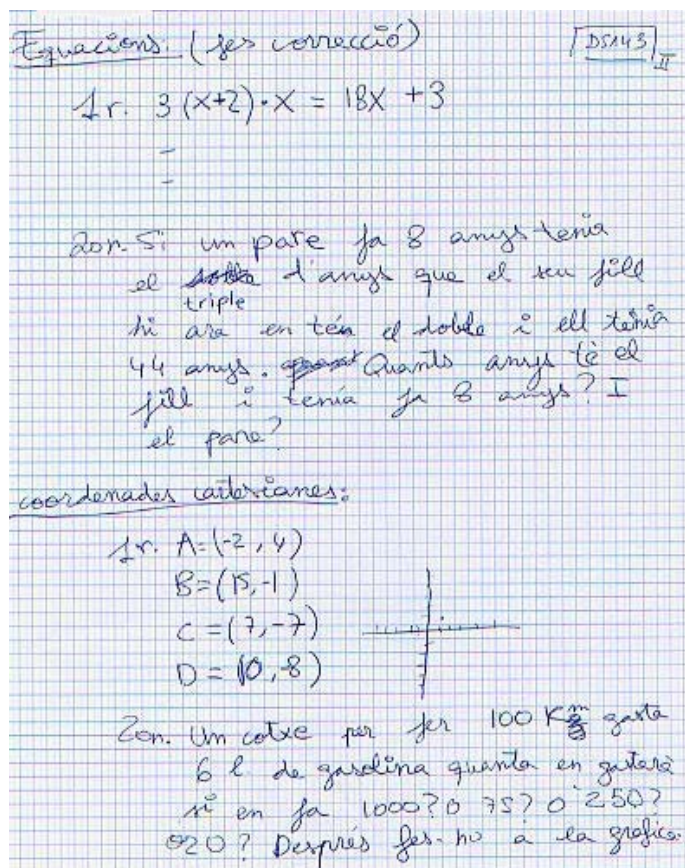 Equacions: (fes correcció) DS143 II
1r. 3(x+2)·x = 18x +3
=
=
2on. Si un pare fa 8 anys tenia
el triple d'anys que el seu fill
hi ara en tén el doble i ell tenia
44 anys. Quants anys té el
fill i tenía fa 8 anys? I
el pare?
coordenades cartesianes:
1r. A=(-2, 4)
B=(15,-1)
C=(7,-7)
D=(10,-8)
2on. Un cotxe per fer 100 Km gasta
6 l de gasolina quanta en gastarà
si en fa 1000? o 75? o 250?
o 20? Després fes-ho a la gràfica